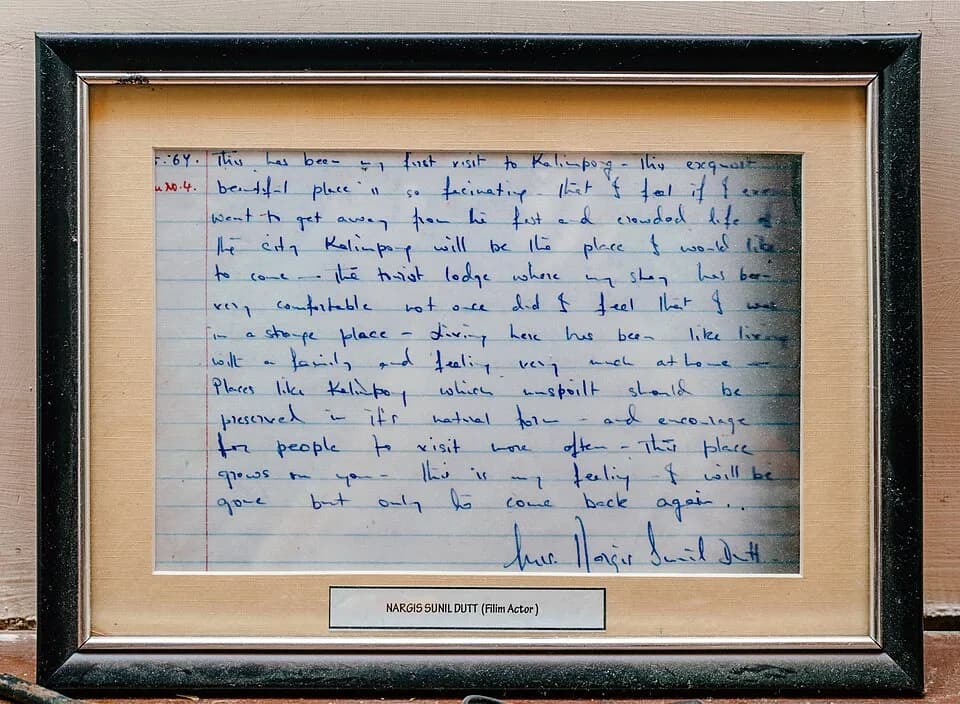 .64. This has been my first visit to Kalimpong - this exquisit
No.4. beautiful place is so facinating - that I feel if I ever
want to get away from the fast and crowded life of
the city Kalimpong will be the place I would like
to come - the tourist lodge where my stay has been
very comfortable not once did I feel that I was
in a strange place - Living here has been like living
with a family and feeling very much at home -
Places like Kalimpong which unspoilt should be
preserved in it's natural form - and encourage
for people to visit more often - This place
grows on you - this is my feeling - I will be
gone but only to come back again ..
Mrs. Nargis Sunil Dutt
NARGIS SUNIL DUTT (Filim Actor)